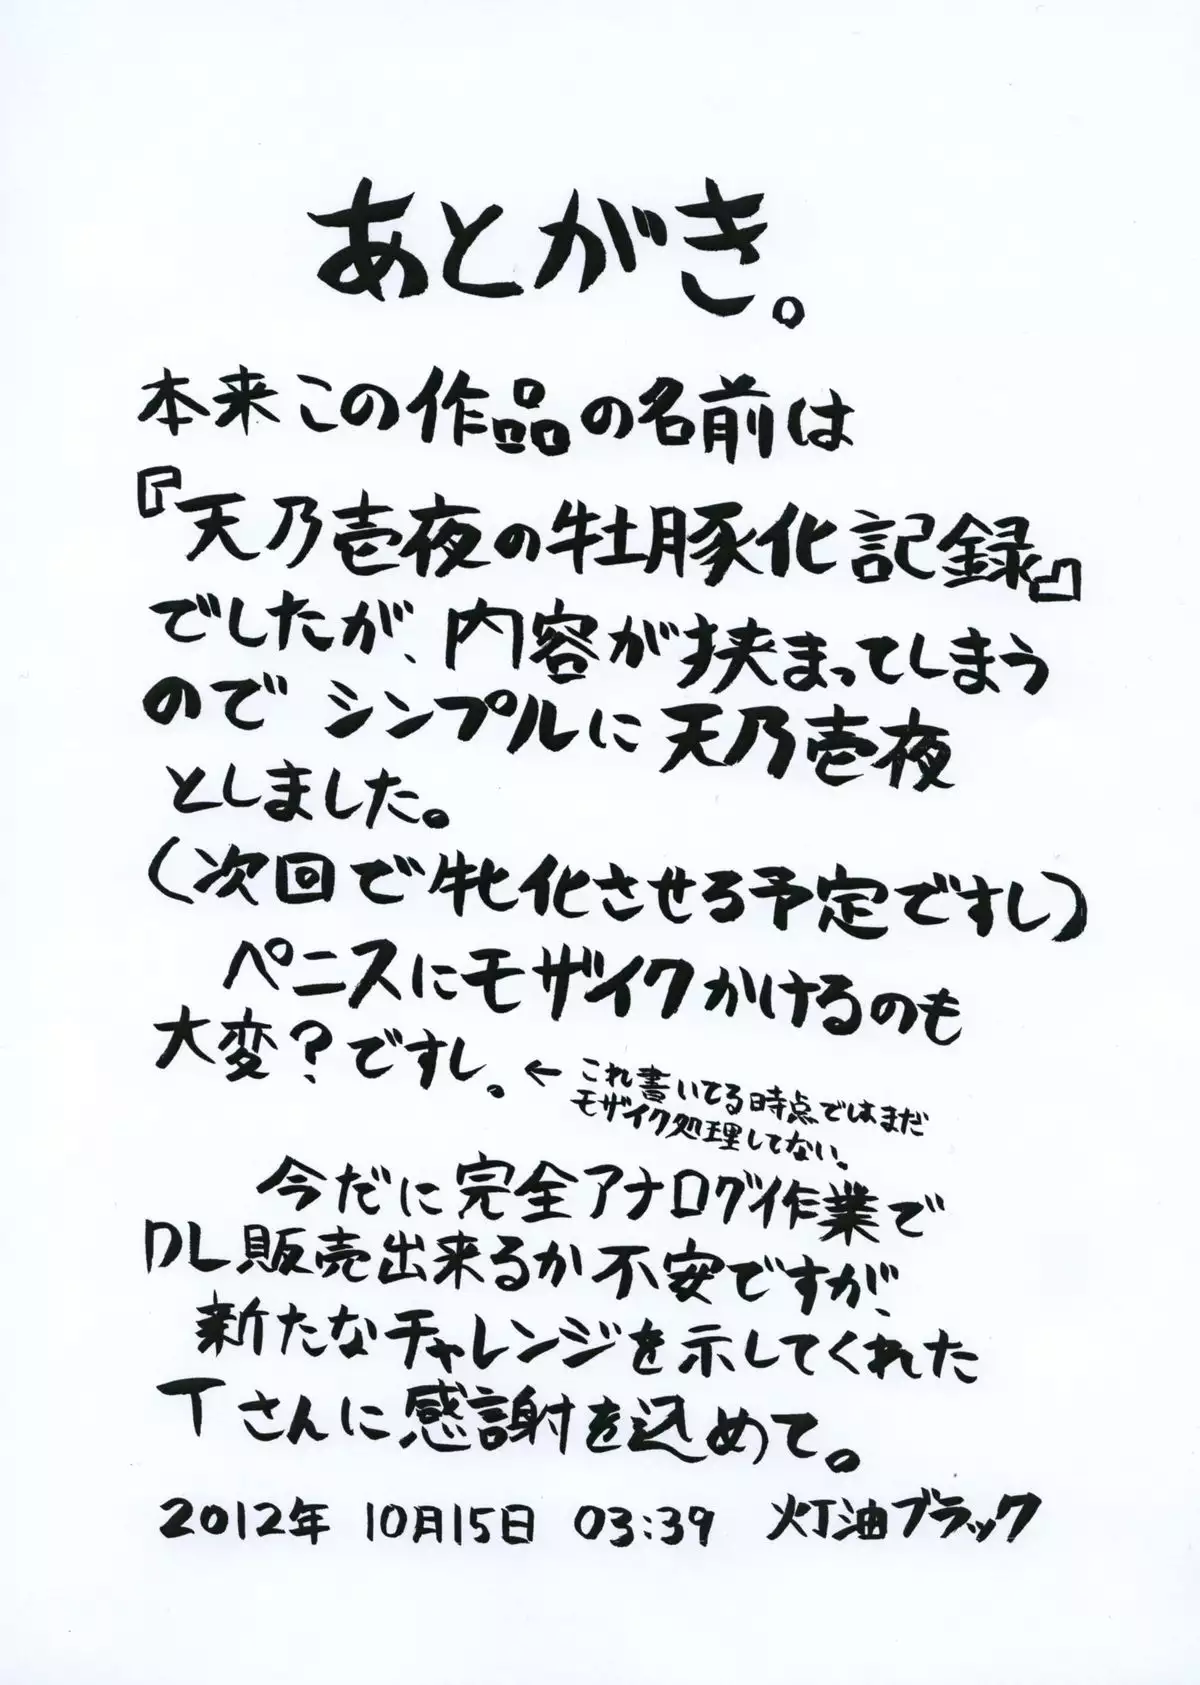 あとがき。
本来この作品の名前は
『天乃壱夜の牡豚化記録』
でしたが、内容が挟まってしまう
ので シンプルに 天乃壱夜
としました。
(次回で牝化させる予定ですし)
ペニスにモザイクかけるのも
大変?ですし。← これ書いてる時点ではまだ
モザイク処理してない。
今だに完全アナログ作業で
DL販売出来るか不安ですが、
新たなチャレンジを示してくれた
Tさんに感謝を込めて。
2012年 10月15日 03:39 灯油ブラック